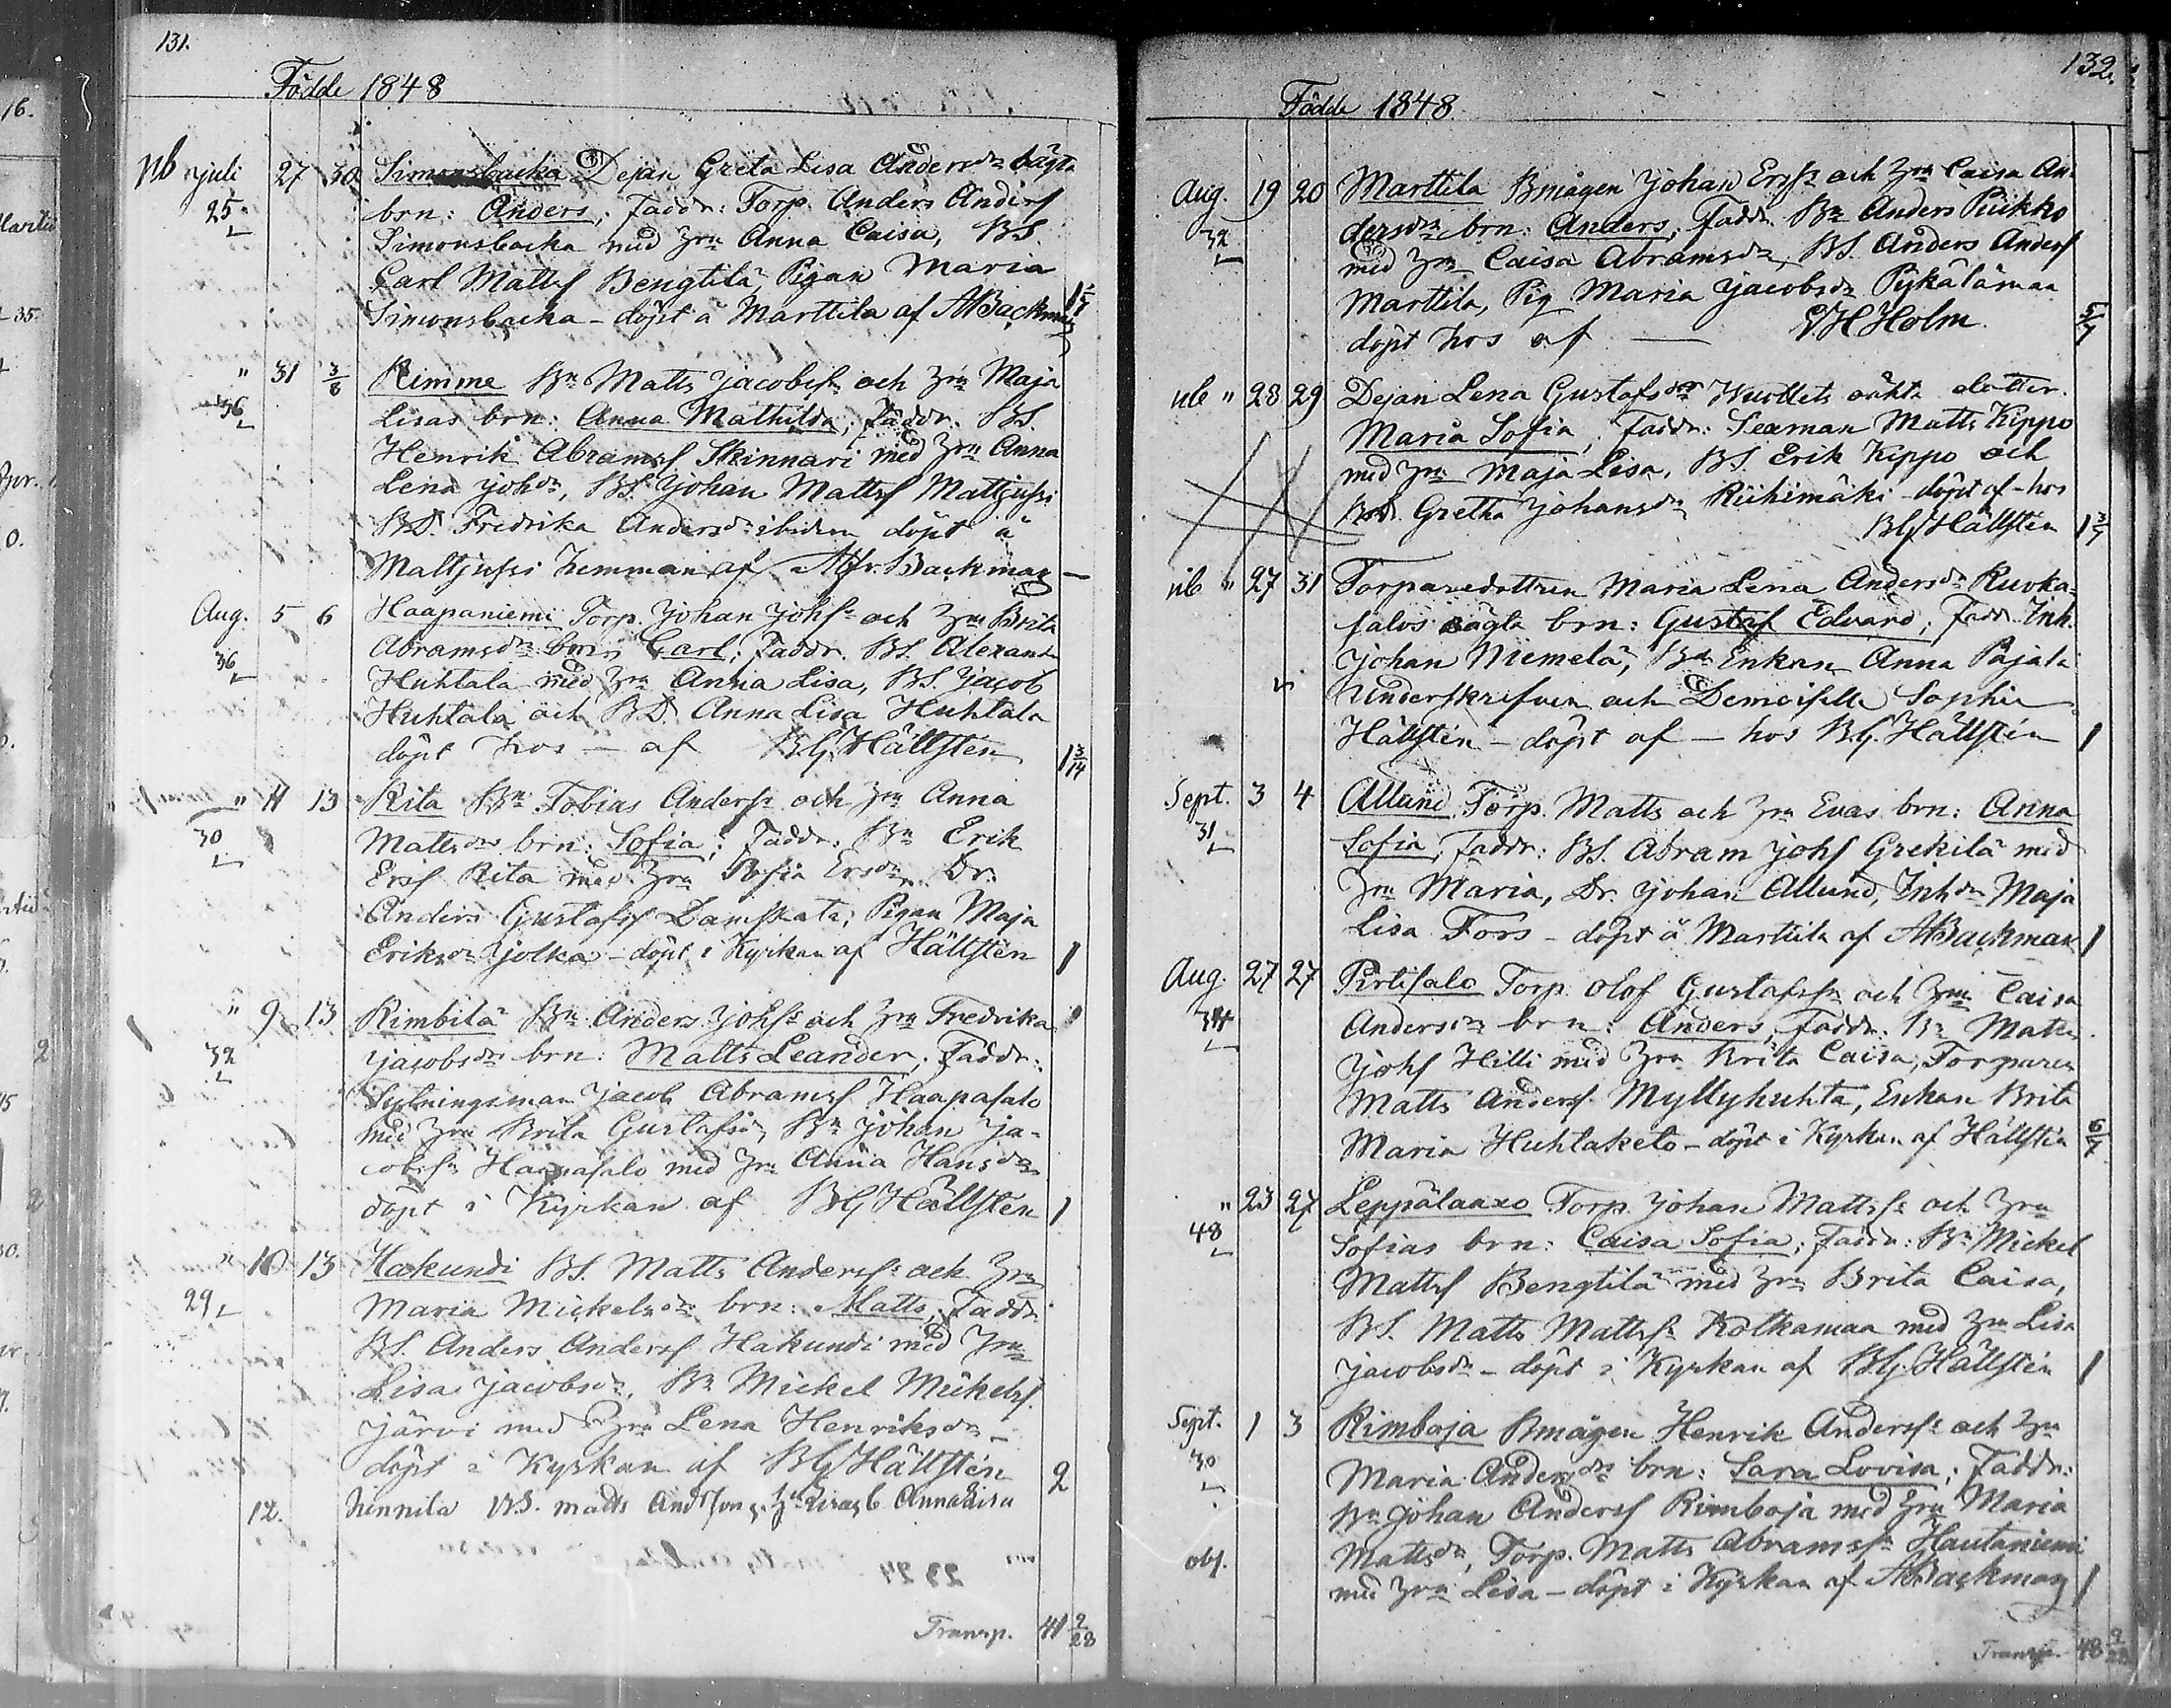 131.
Födde 1848
nb juli 27 30 Simonsbacka Dejan Greta Lisa Andersdr oägta
25 brn: Anders; Faddr: Torp. Anders Andersf
Simonsbacka med hru Anna Caisa, BS.
Carl Mattsf Bengtilä, Pigan Maria
Simonsbacka - döpt å Marttila af ABackman
" 31 3/8 Rimme Bn Matts Jacobsfs och hru Maja
36 Lisas brn: Anna Mathilda; Faddr. BS.
Henrik Abramsf Skinnari med hru Anna
Lena Johdr, BS. Johan Mattsf Mattjussi
BD. Fredrika Andersdr ibidem döpt å
Mattjussi hemman af Abr. Backman —
Aug. 5 6 Haapaniemi Torp. Johan Johfs och hru Brita
36 Abramsdrs brn: Carl; Faddr. BS. Alexand
Huhtala med hru Anna Lisa, BS. Jacob
Huhtala och BD. Anna Lisa Huhtala
döpt hos — af BGHällsten 1 3/14
" 11 13 Rita Bn Tobias Andersfs och hru Anna
30 Mattsdrs brn: Sofia; Faddr. Bn Erik
Ersf Rita med hru Sofia Ersdr, Dr.
Anders Gustafsf Damskata; Pigan Maja
Eriksdr Jolka - döpt i Kyrkan af Hällsten 1
" 9 13 Rimbilä Bn Anders Johfs och hru Fredrika
32 Jacobsdrs brn: Matts Leander; Faddr:
Sytningsman Jacob Abramsf Haapasalo
med hru Brita Gustafsdr, Bn Johan Ja-
cobsfs Haapasalo med hru Anna Hansdr
döpt i Kyrkan af BGHällsten 1
" 10 13 Hakundi BS. Matts Andersfs och hru
29 Maria Mickelsdrs brn: Matts; Faddr.
BS. Anders Andersf Hakundi med hru
Lisa Jacobsdr, Bn Mickel Mickelsf
Järvi med hru Lena Henriksdr -
döpt i Kyrkan af BGHällsten 2
12. Nennila BS. Matts Andsson o. hu b. Anna Lisa
Transp. 41 9/28
132.
Födde 1848
Aug. 19 20 Marttila Bmågen Johan Ersfs och hru Caisa An-
32 dersdrs brn: Anders; Faddr. Bn Anders Piikko
med hru Caisa Abramsdr, BS. Anders Andersf
Marttila, Pig Maria Jacobsdr Pykälämaa
döpt hos af — GHHolm 5/7
ub " 28 29 Dejan Lena Gustafsdr Wuollets oäkta dotter
Maria Sofia; Faddr: Sexman Matts Kippo
med hru Maja Lisa, BS. Erik Kippo och
BD. Gretha Johansdr Riihimäki döpt af - hos
BGHällsten 1 3/7
ub " 27 31 Torparedottren Maria Lena Andersdr Ruoka-
salos oägta brn: Gustaf Edvard; Fadr. Inh.
Johan Niemelä, Bd Enkan Anna Pajala
Underskrifven och Demoiselle Sophie
Hällsten - döpt af — hos B.G.Hällsten 1
Sept. 3 4 Allund Torp. Matts och hru Evas brn: Anna
31 Sofia; Faddr: BS. Abram Johf Grekilä med
hru Maria, Dr. Johan Allund, Inhdr Maja
Lisa Fors - döpt å Marttila af ABackman 1
Aug. 27 27 Pirtisalo Torp. Olof Gustafsfs och hru Caisa
34 Andersdrs brn: Anders; Faddr. Bn Matts
Johf Hilli med hru Brita Caisa, Torparen
Matts Andersf Myllyhuhta, Enkan Brita
Maria Huhtaketo - döpt i Kyrkan af Hällsten 6/7
" 23 27 Leppälaaxo Torp. Johan Mattsfs och hru
48 Sofias brn: Caisa Sofia; Faddr: Bn Mickel
Mattsf Bengtilä med hru Brita Caisa,
BS. Matts Mattsfs Kolkamaa med hru Lisa
Jacobsdr - döpt i Kyrkan af BGHällsten 1
Sept. 1 3 Rimboja Bmågen Henrik Andersfs och hru
30 Maria Andersdrs brn: Sara Lovisa; Faddr:
Bn Johan Andersf Rimboja med hru Maria
obs. Mattsdr, Torp. Matts Abramsfs Hautaniemi
med hru Lisa - döpt i Kyrkan af ABackman 1
Transp. 48